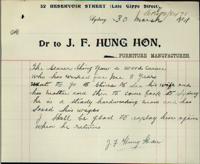 52 RESERVOIR STREET (Late Gipps Street),
Sydney, 30 March 191
Dr to J. F. HUNG HON,
FURNITURE MANUFACTURER.
The bearer Hing Yow a wood carver
who has worked for me 8 years
want to go to China to see his wife and
his mother and then to come back to Sydney
he is a steady hardworking man and has
saved his wages
I shall be glad to employ him again
when he returns
J F Hung Hon